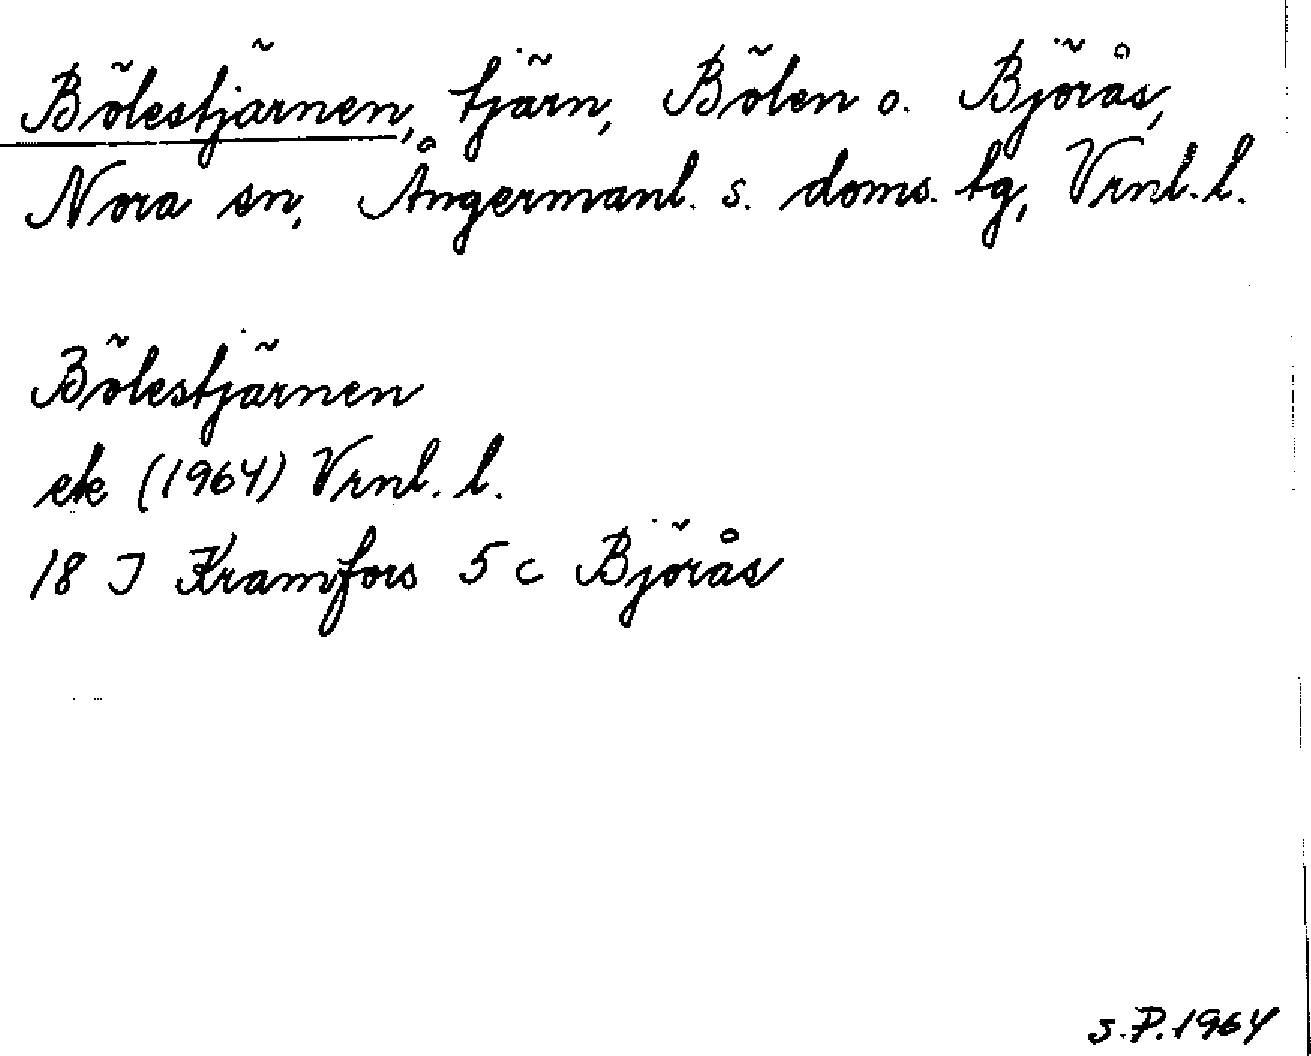 Bölestjärnen, tjärn, Bölen o. Björås,
Nora sn, Ångermanl. s. doms. tg, Vrnl. l.
Bölestjärnen
ek (1964) Vrnl. l.
18 J Kramfors 5 c Björås
S.P. 1964